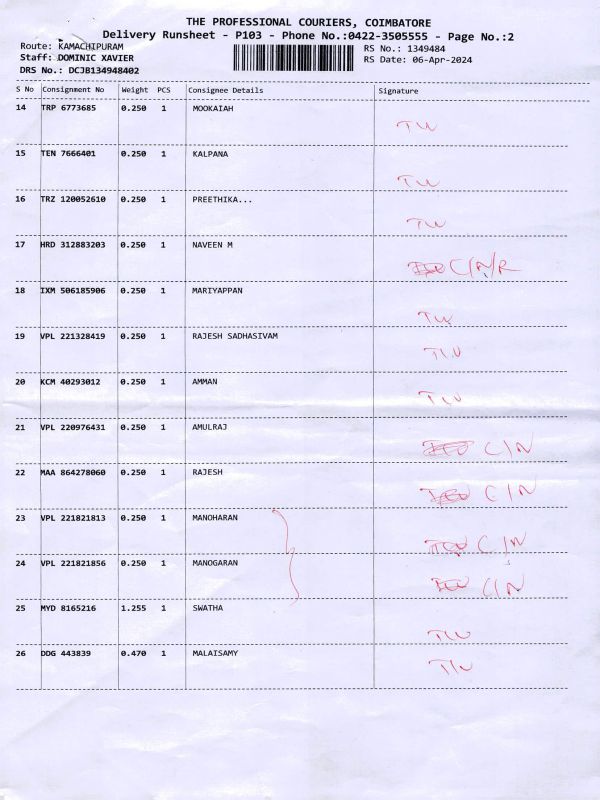 THE PROFESSIONAL COURIERS, COIMBATORE
Delivery Runsheet - P103 - Phone No.:0422-3505555 - Page No.:2
Route: KAMACHIPURAM
RS No.: 1349484
Staff: DOMINIC XAVIER
RS Date: 06-Apr-2024
DRS No.: DCJB134948402
S No Consignment No Weight PCS Consignee Details Signature
14 TRP 6773685 0.250 1 MOOKAIAH
15 TEN 7666401 0.250 1 KALPANA
16 TRZ 120052610 0.250 1 PREETHIKA...
17 HRD 312883203 0.250 1 NAVEEN M C/N/R
18 IXM 506185906 0.250 1 MARIYAPPAN
19 VPL 221328419 0.250 1 RAJESH SADHASIVAM
20 KCM 40293012 0.250 1 AMMAN
21 VPL 220976431 0.250 1 AMULRAJ C/N
22 MAA 864278060 0.250 1 RAJESH C/N
23 VPL 221821813 0.250 1 MANOHARAN C/N
24 VPL 221821856 0.250 1 MANOGARAN C/N
25 MYD 8165216 1.255 1 SWATHA
26 DDG 443839 0.470 1 MALAISAMY